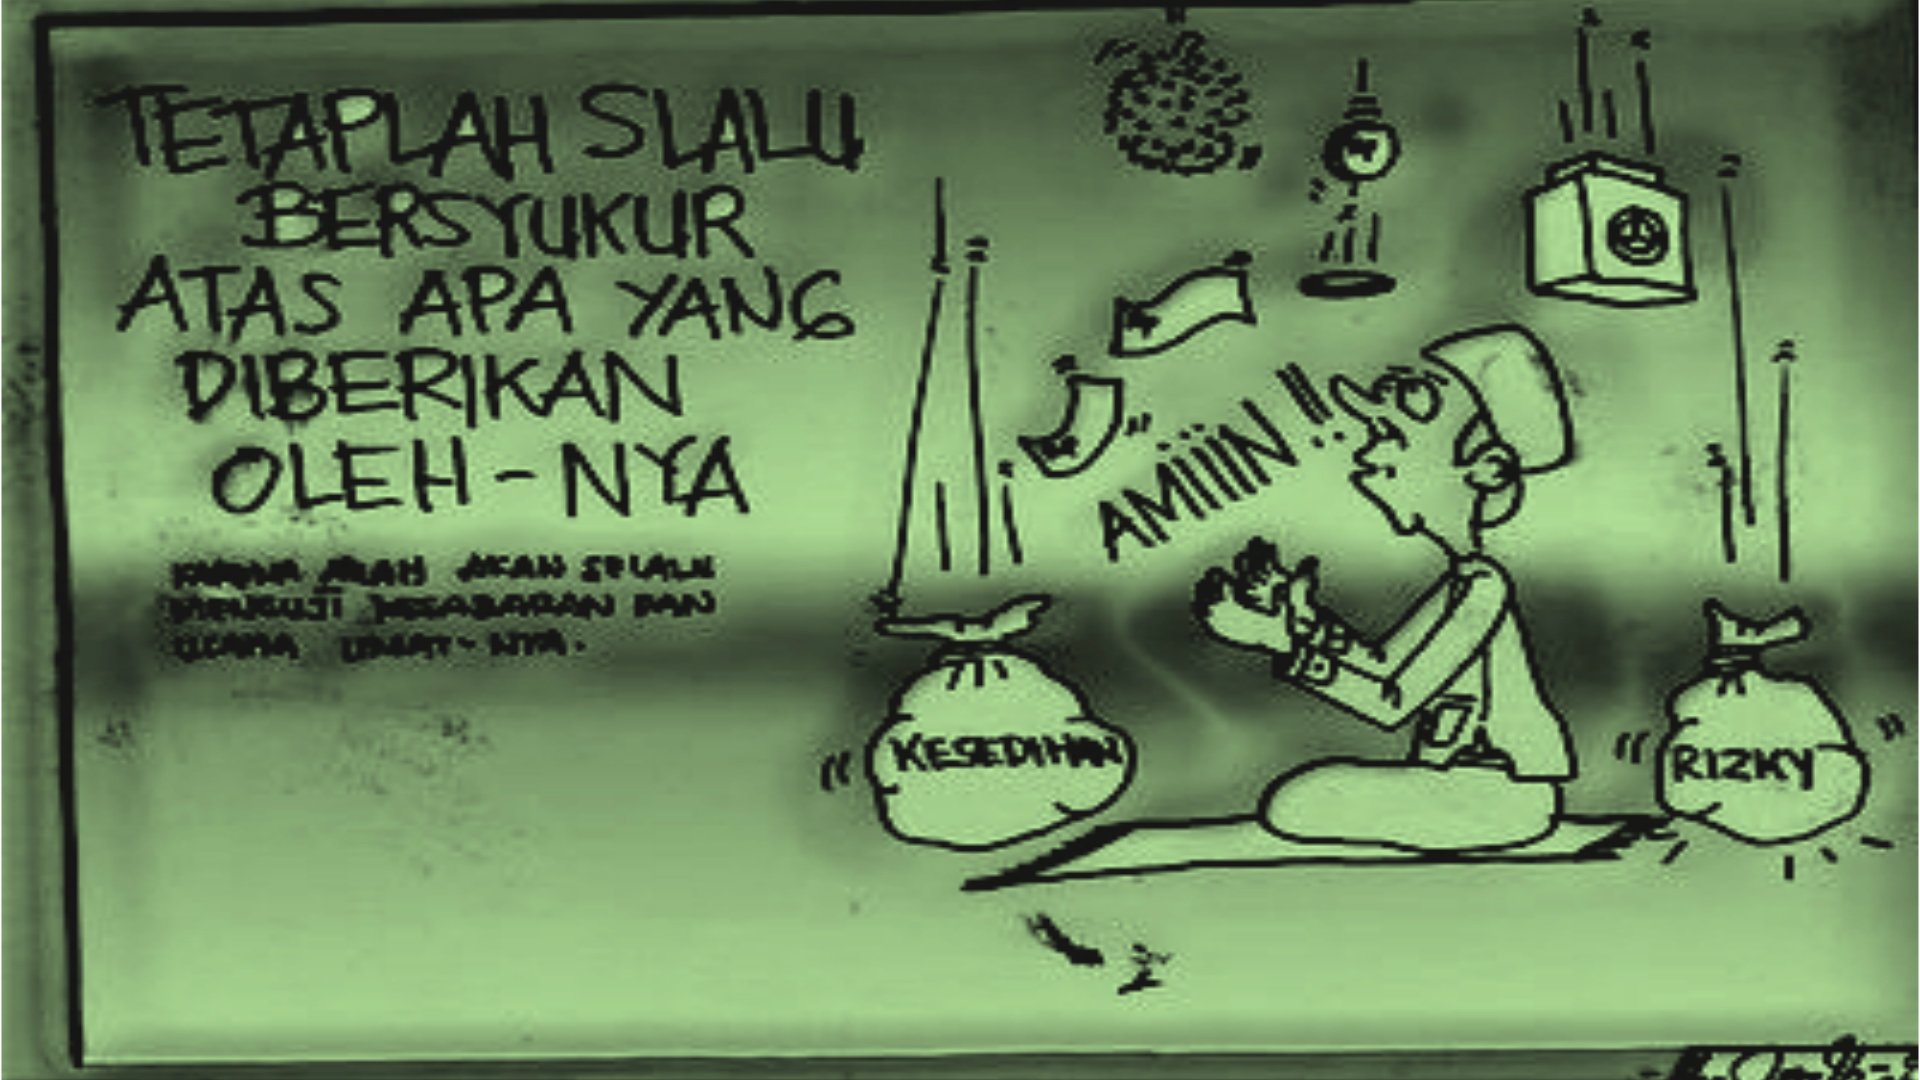 TETAPLAH SLALU
BERSYUKUR
ATAS APA YANG
DIBERIKAN
OLEH-NYA
KARENA ALLAH AKAN SELALU
MENGUJI KESABARAN DAN
UMAT-NYA.
AMIIIN!!
KESEDIHAN
RIZKY